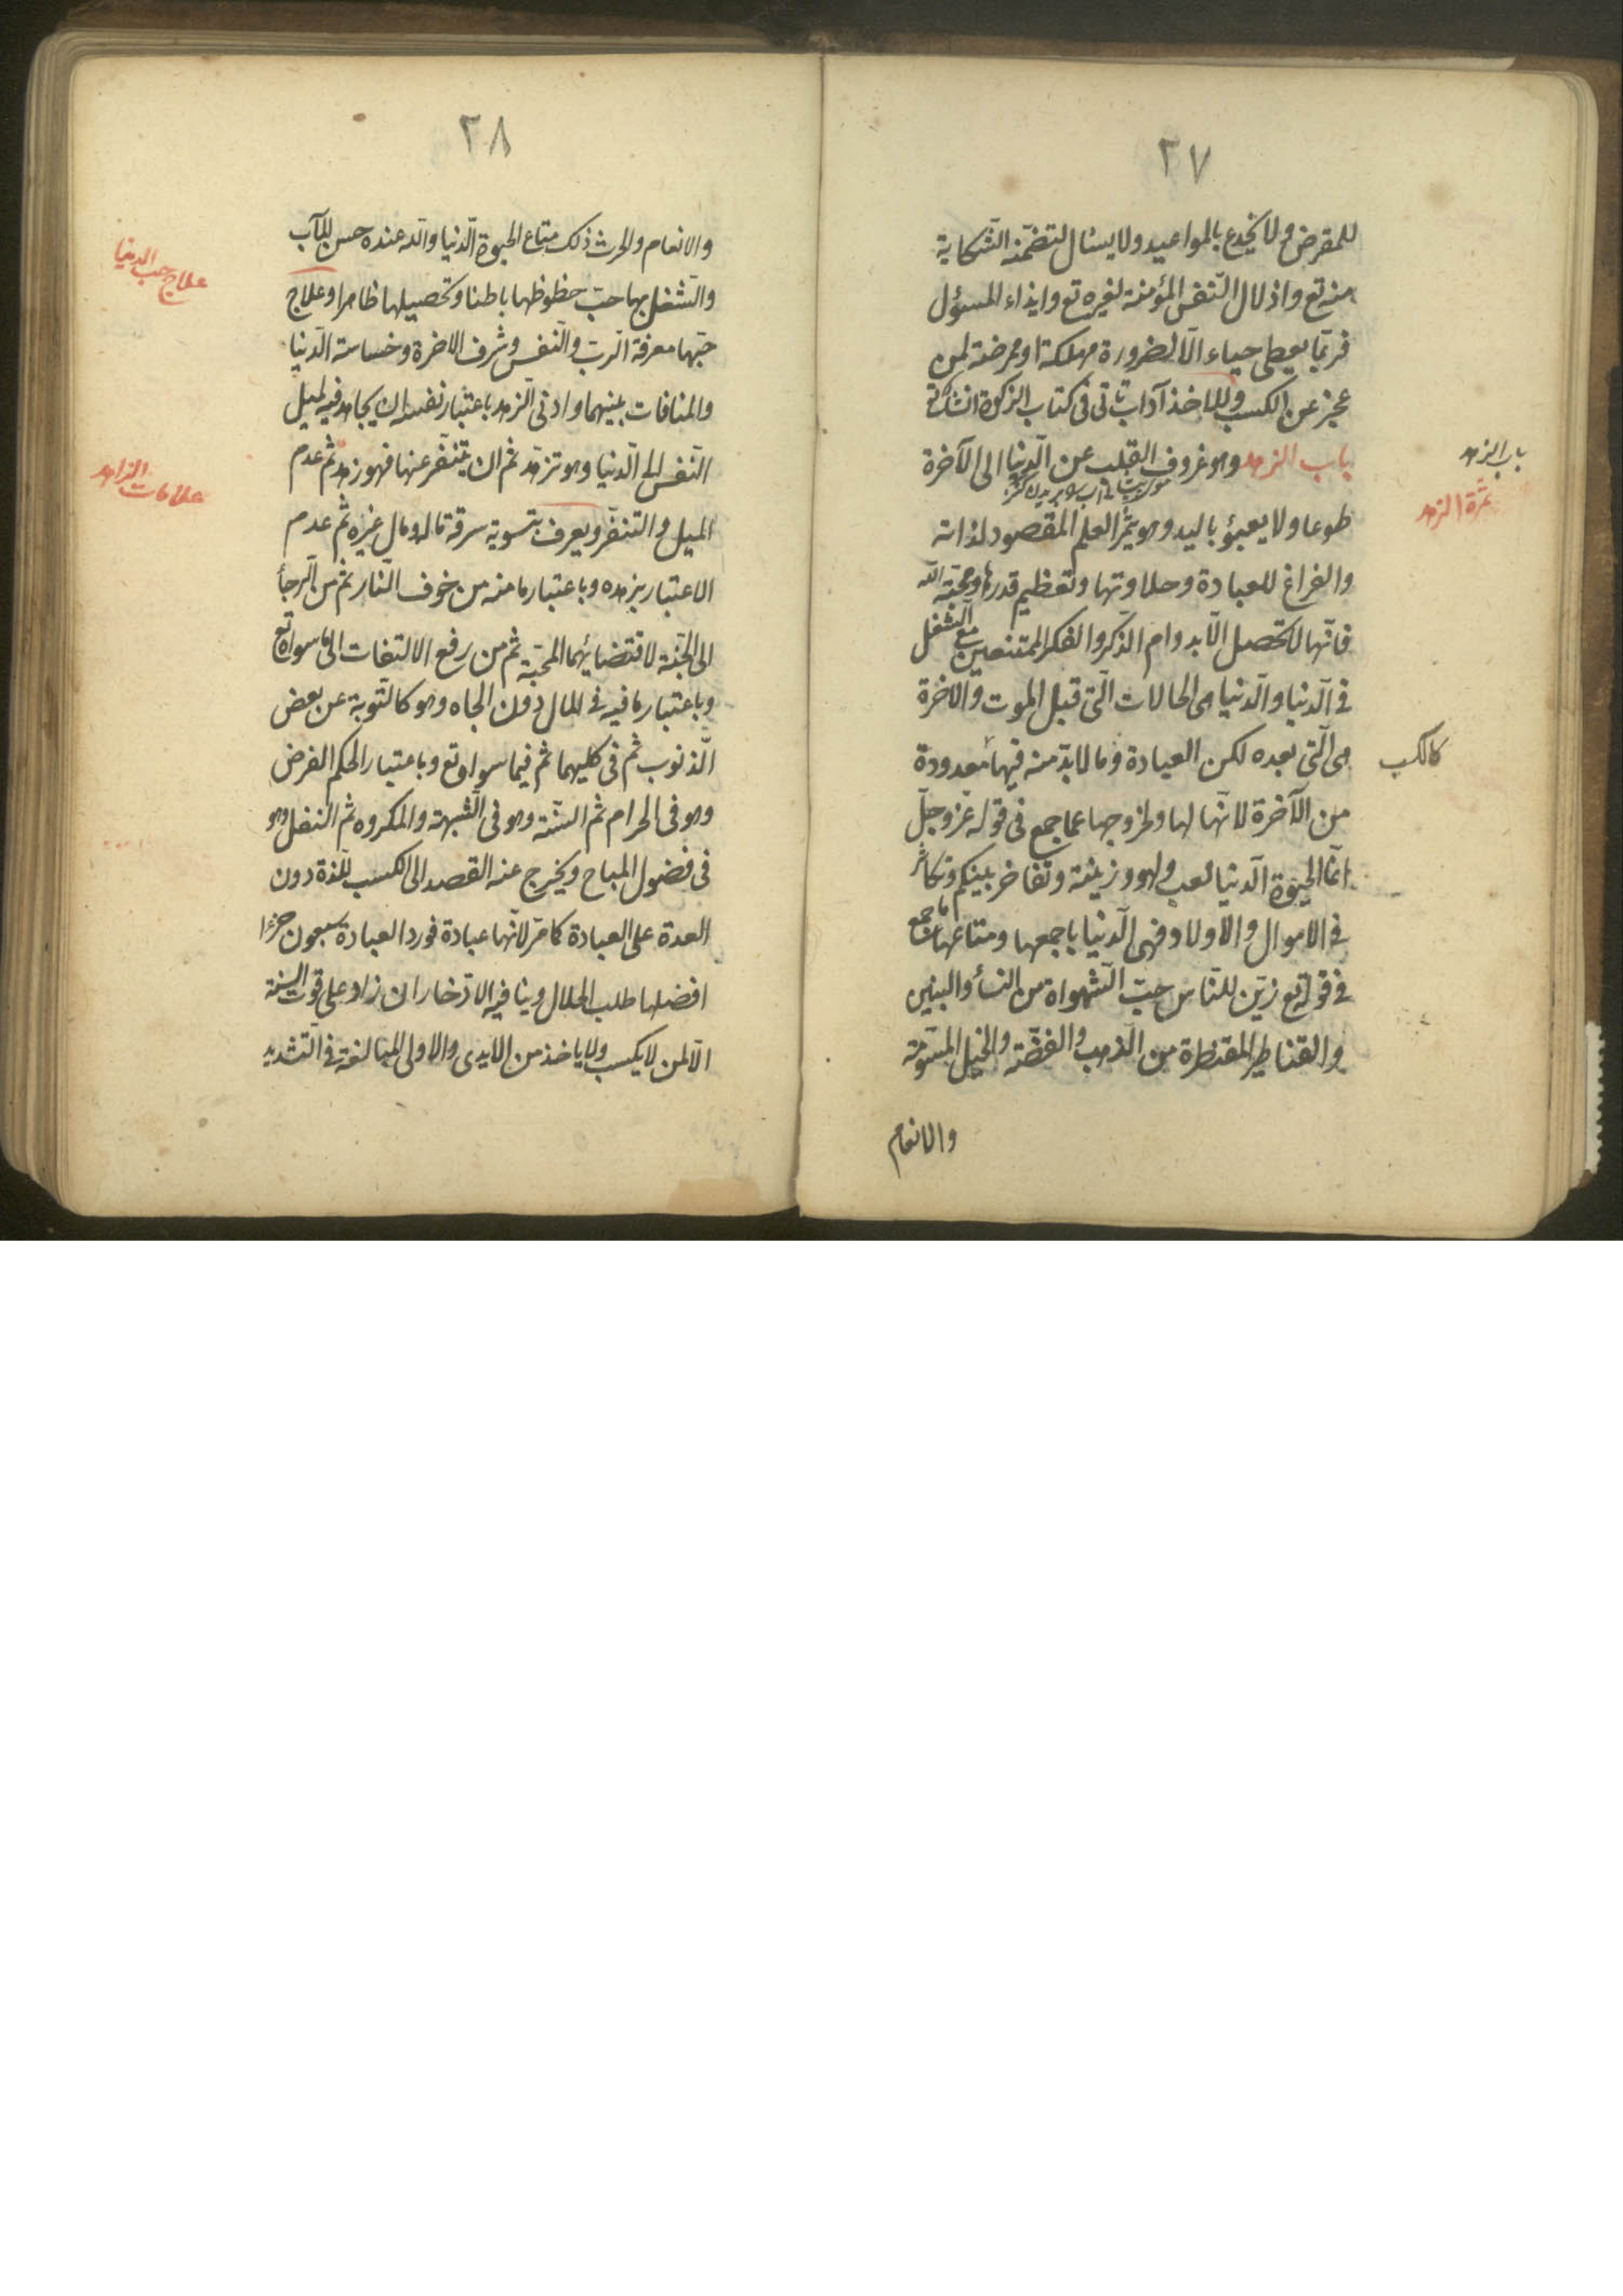 ٣٧
للمقرض ولا يخدع بالمواعيد ولا يسئال لتضمّنه الشّكاية
منه تع واذلال النّفس المؤمنة لغيره تع وايذاء المسئول
فربّما يعطى حياء الّا لضرورة مهلكة او ممرضة لمن
عجز عن الكسب وللاخذ آداب تاتى فى كتاب الزكوة انشاء تع
باب الزهد وهو عزوف القلب عن الّدنيا الى الآخرة
طوعا ولا يعبؤ باليد وهو يثمر العلم المقصود لذاته
والفراغ للعبادة وحلاوتها وتعظيم قدرها ومحبّة الله
فانّها لا تحصل الّا بدوام الذّكر والفكر الممتنعين مع الشغل
فى الّدنيا والّدنيا هى الحالات الّتى قبل الموت والاخرة
هى الّتى بعده لكن العبادة وما لا بدّ منه فيها معدودة
من الآخرة لانّها لها ولخروجها عما جمع فى قوله عز وجلّ
انّما الحيوة الّدنيا لعب ولهو وزينة وتفاخر بينكم وتكاثر
فى الاموال والاولاد فهى الّدنيا باجمعها ومتاعها ما جمع
فى قوله تع زيّن للنّاس حبّ الشّهواة من النساء والبنين
والقناطير المقنطرة من الّذهب والفضّة والخيل المسوّمة
والانعام
باب الزهد
ثمرة الزهد
كالكسب
٣٨
والانعام والحرث ذلك متاع الحيوة الّدنيا والله عنده حسن المآب
والشّغل بها حبّ حظوظها باطنا وتحصيلها ظاهرا وعلاج
حبّها معرفة الرّب والنّفس وشرف الاخرة وخساسة الّدنيا
والمنافات بينهما وادنى الزهد باعتبار نفسه ان يجاهد فيه لميل
النّفس الى الّدنيا وهو تزهّد ثم ان يتنفّر عنها فهو زهد ثم عدم
الميل والتنفّر ويعرف بتسوية سرقة ماله ومال غيره ثم عدم
الاعتبار بزهده وباعتبار ما منه من خوف النّار ثم من الرجأ
الى الجنّة لاقتضائهما المحبّة ثم من رفع الالتفات الى ما سواه تع
وباعتبار ما فيه فى المال دون الجاه وهو كالتّوبة عن بعض
الّذنوب ثم فى كليهما ثم فيما سواه تع وباعتبار الحكم الفرض
وهو فى الحرام ثم السنّة وهو فى الشّبهة والمكروه ثم النفل وهو
فى فضول المباح ويخرج عنه القصد الى الكسب للّذة دون
العدة على العبادة كما مرّ لانّها عبادة فورد العبادة سبعون جزءا
افضلها طلب الحلال وينافيه الادّخار ان زاد على قوت السنة
الّا لمن لا يكسب ولا ياخذ من الايدى والاولى المبالغة فى التشديد
علاج حب الدنيا
علامات الزاهد